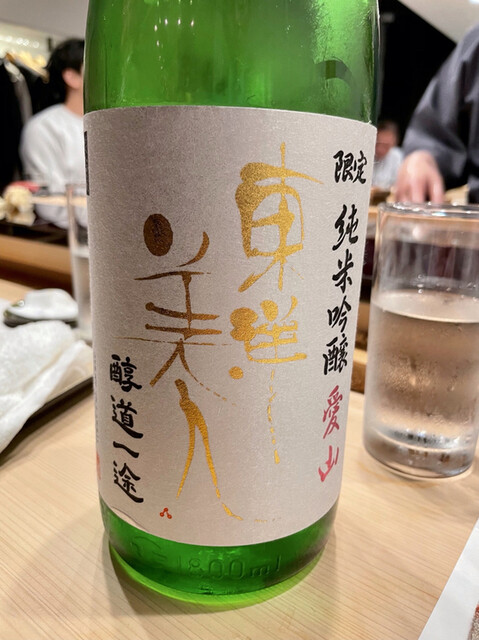 限定 純米吟醸 愛山
東洋
美人
醇道一途
1800ml